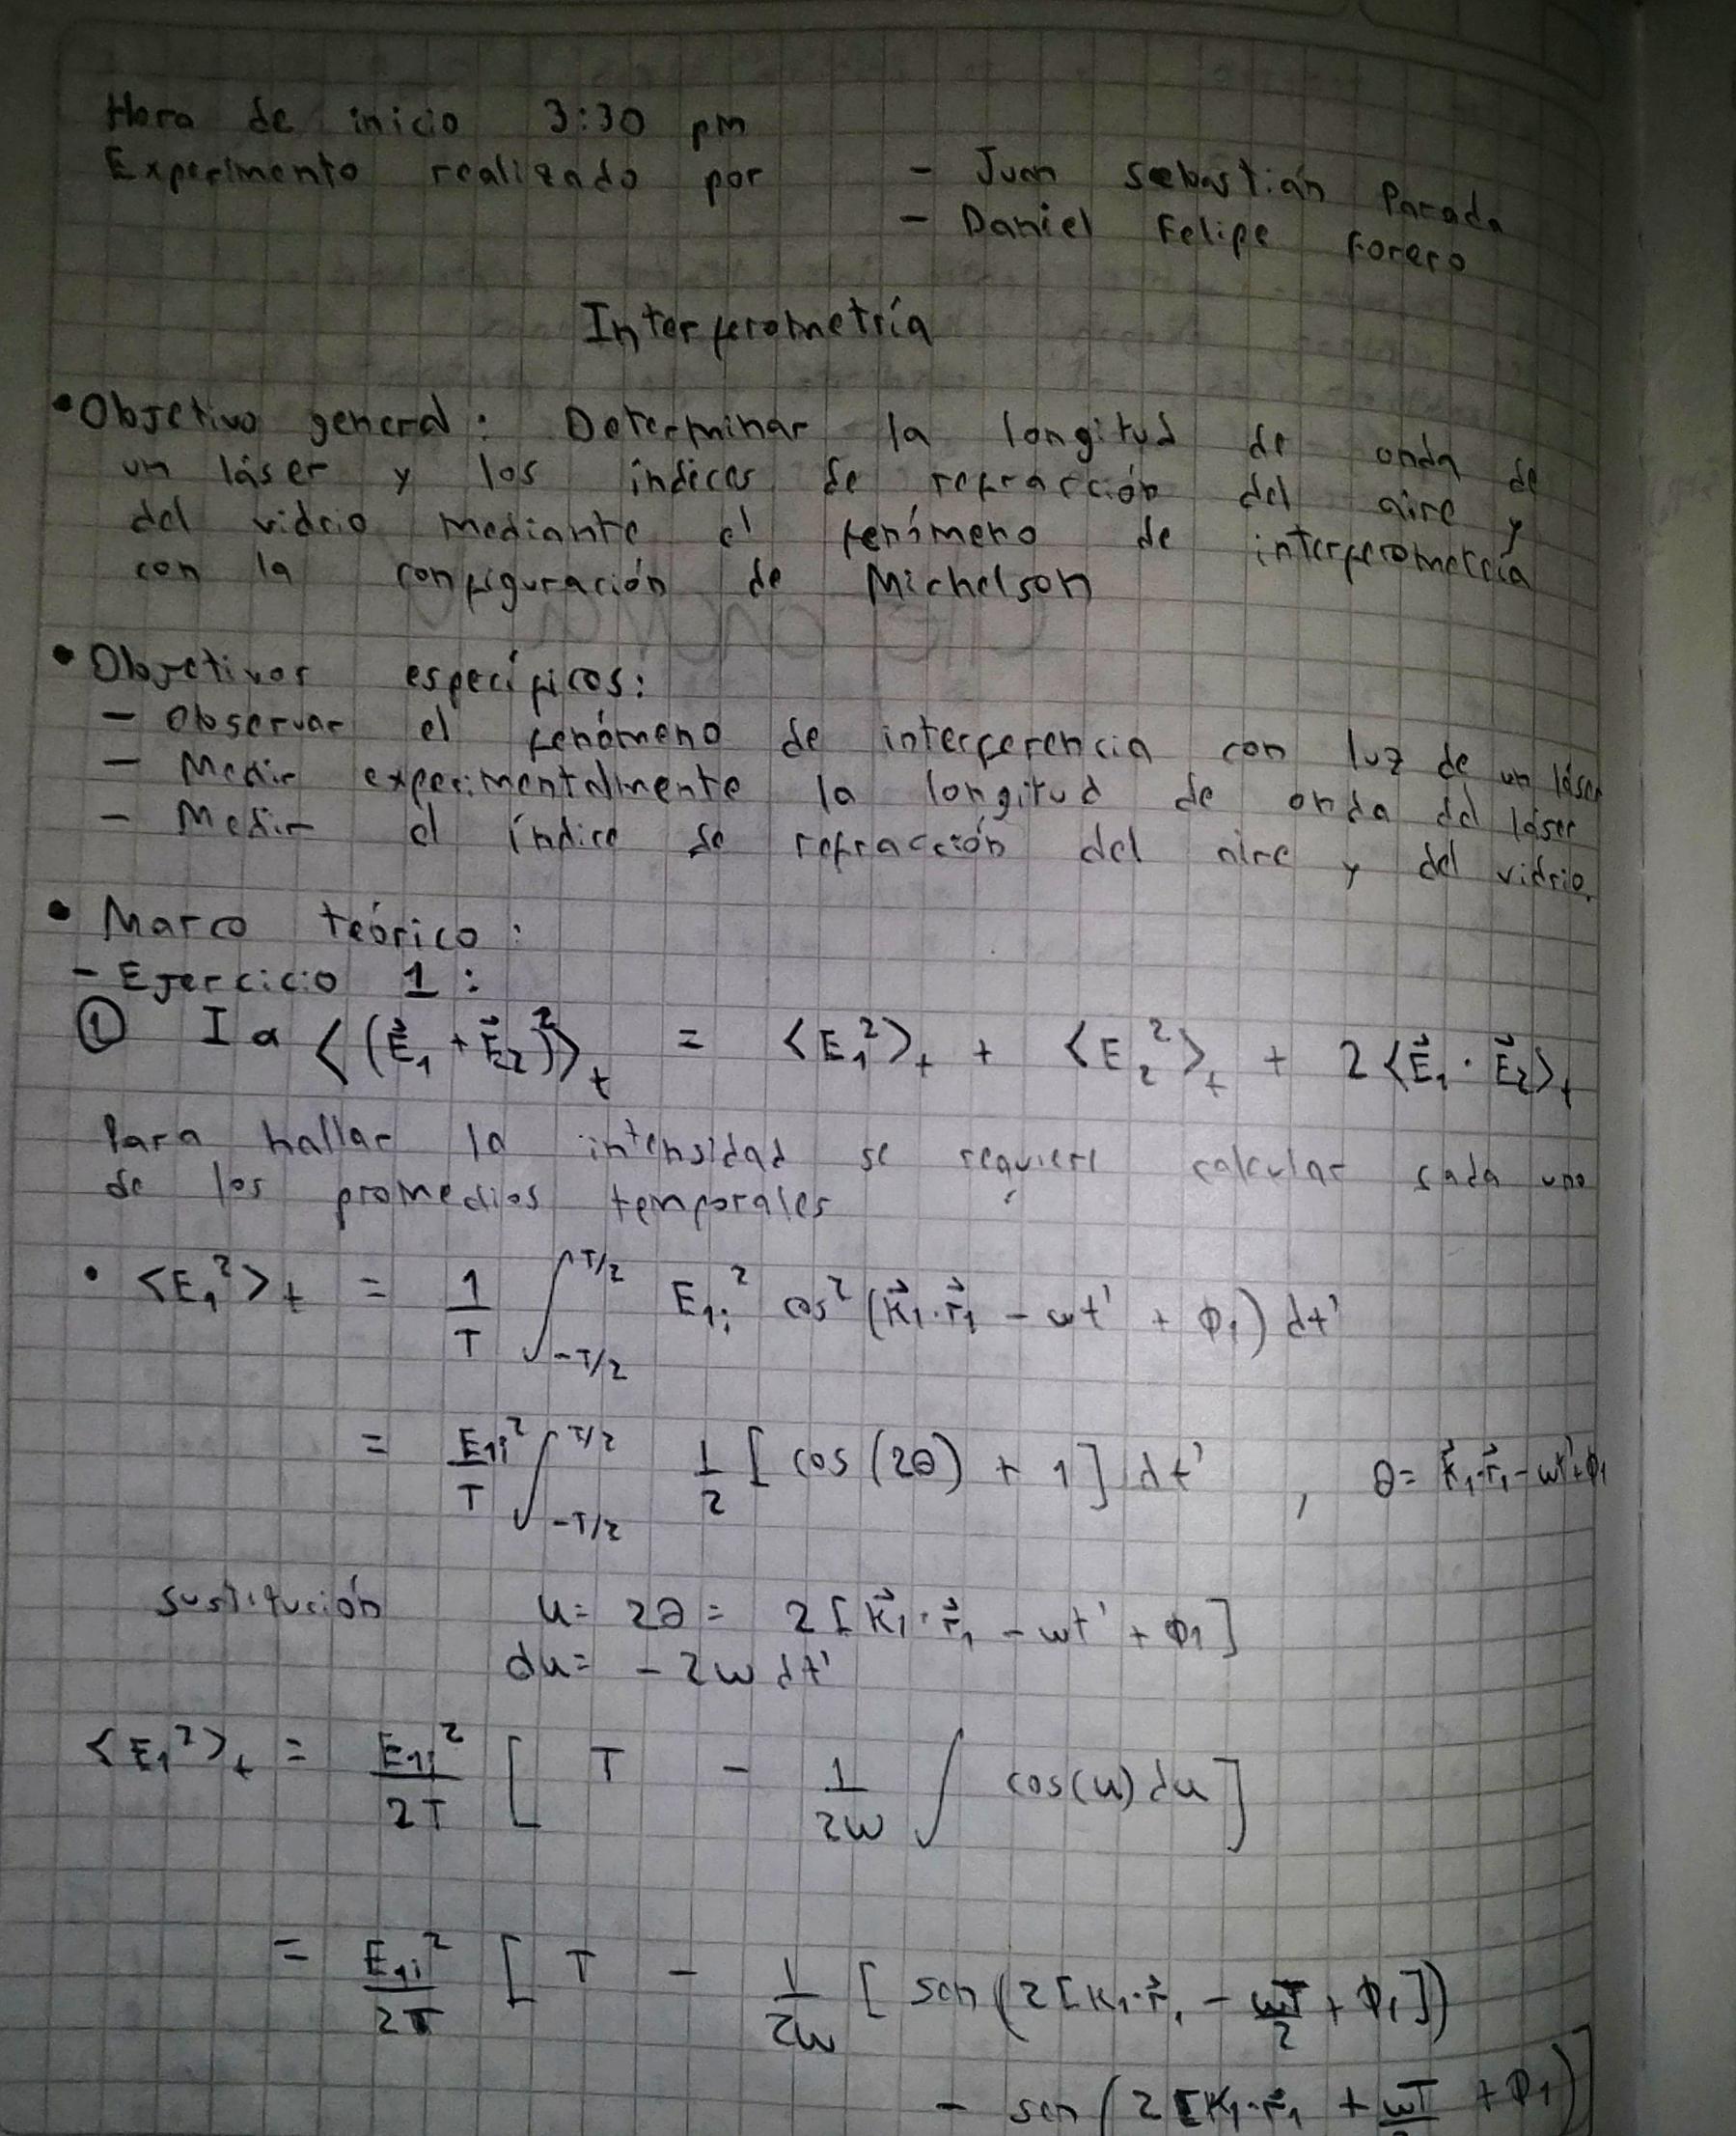 Hora de inicio 3:30 pm
Experimento realizado por - Juan Sebastián Parada
- Daniel Felipe Forero
Interferometría
• Objetivo general: Determinar la longitud de onda de
un láser y los índices de refracción del aire y
del vidrio mediante el fenómeno de interferometría
con la configuración de Michelson
• Objetivos específicos:
- Observar el fenómeno de interferencia con luz de un láser
- Medir experimentalmente la longitud de onda del láser
- Medir el índice de refracción del aire y del vidrio.
• Marco teórico:
- Ejercicio 1:
① I α ⟨(E⃗₁ + E⃗₂)²⟩ₜ = ⟨E₁²⟩ₜ + ⟨E₂²⟩ₜ + 2⟨E⃗₁ · E⃗₂⟩ₜ
Para hallar la intensidad se requiere calcular cada uno
de los promedios temporales
• ⟨E₁²⟩ₜ = 1/T ∫_{-T/2}^{T/2} E₁ᵢ² cos²(k⃗₁·r⃗₁ - ωt' + Φ₁) dt'
= E₁ᵢ²/T ∫_{-T/2}^{T/2} 1/2 [cos(2θ) + 1] dt' , θ = k⃗₁·r⃗₁ - ωt' + Φ₁
sustitución u = 2θ = 2[k⃗₁·r⃗₁ - ωt' + Φ₁]
du = -2ω dt'
⟨E₁²⟩ₜ = E₁ᵢ²/2T [T - 1/2ω ∫ cos(u) du]
= E₁ᵢ²/2T [T - 1/2ω [sen(2[k₁·r⃗₁ - ωT/2 + Φ₁])
- sen(2[k₁·r⃗₁ + ωT/2 + Φ₁)]